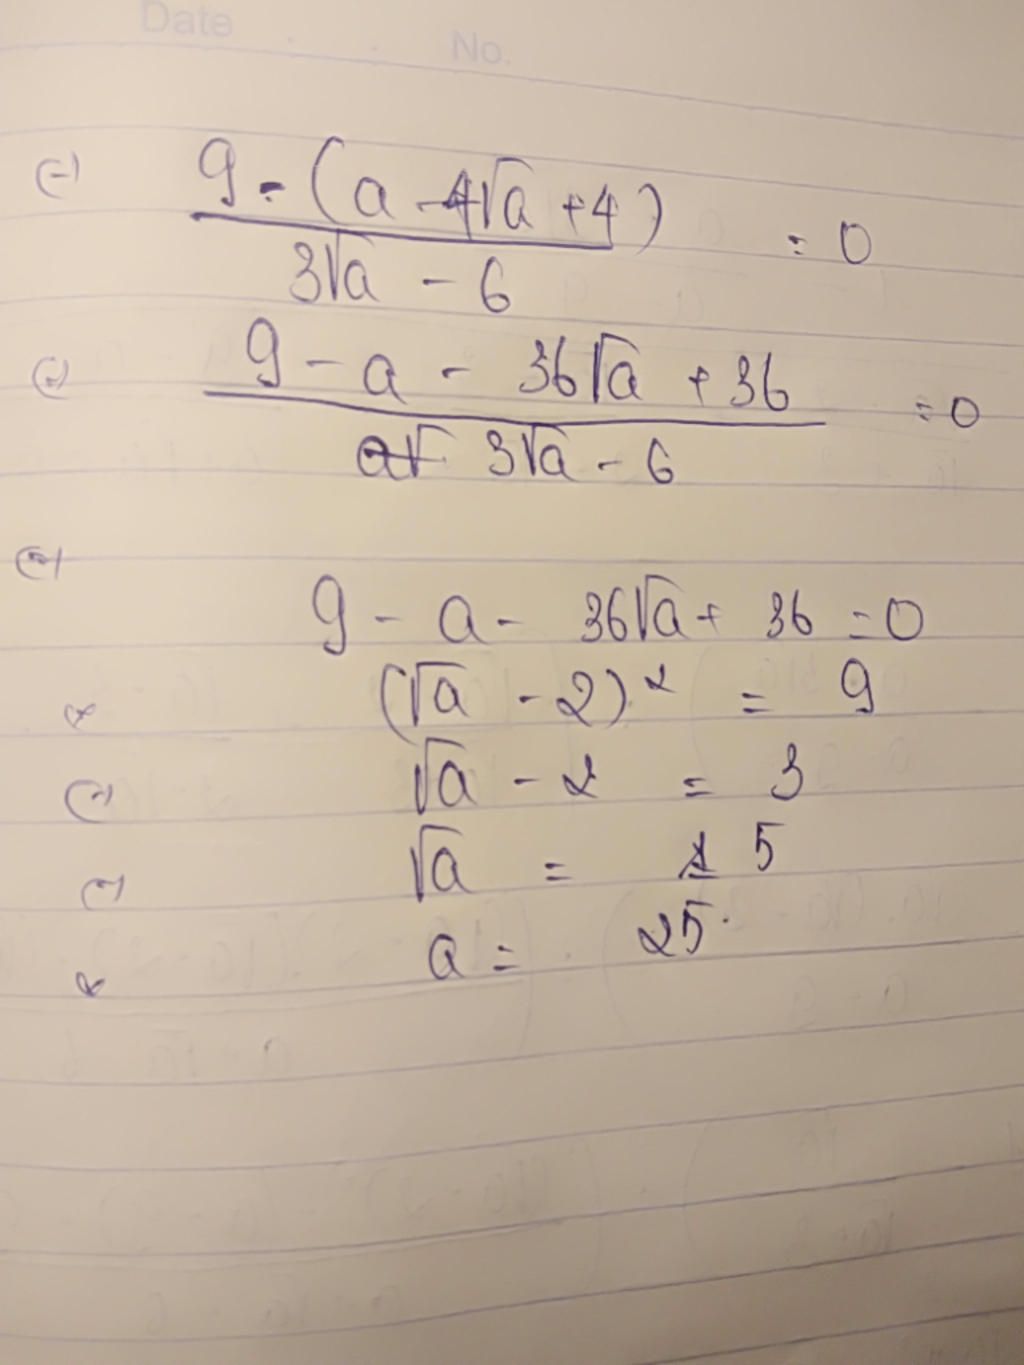 Date No.
(=) 9 - (a - 4√a + 4) = 0
3√a - 6
(=) 9 - a - 36√a + 36 = 0
3√a - 6
(=)
9 - a - 36√a + 36 = 0
(√a - 2)² = 9
(=) √a - 2 = 3
(=) √a = 5
a = 25